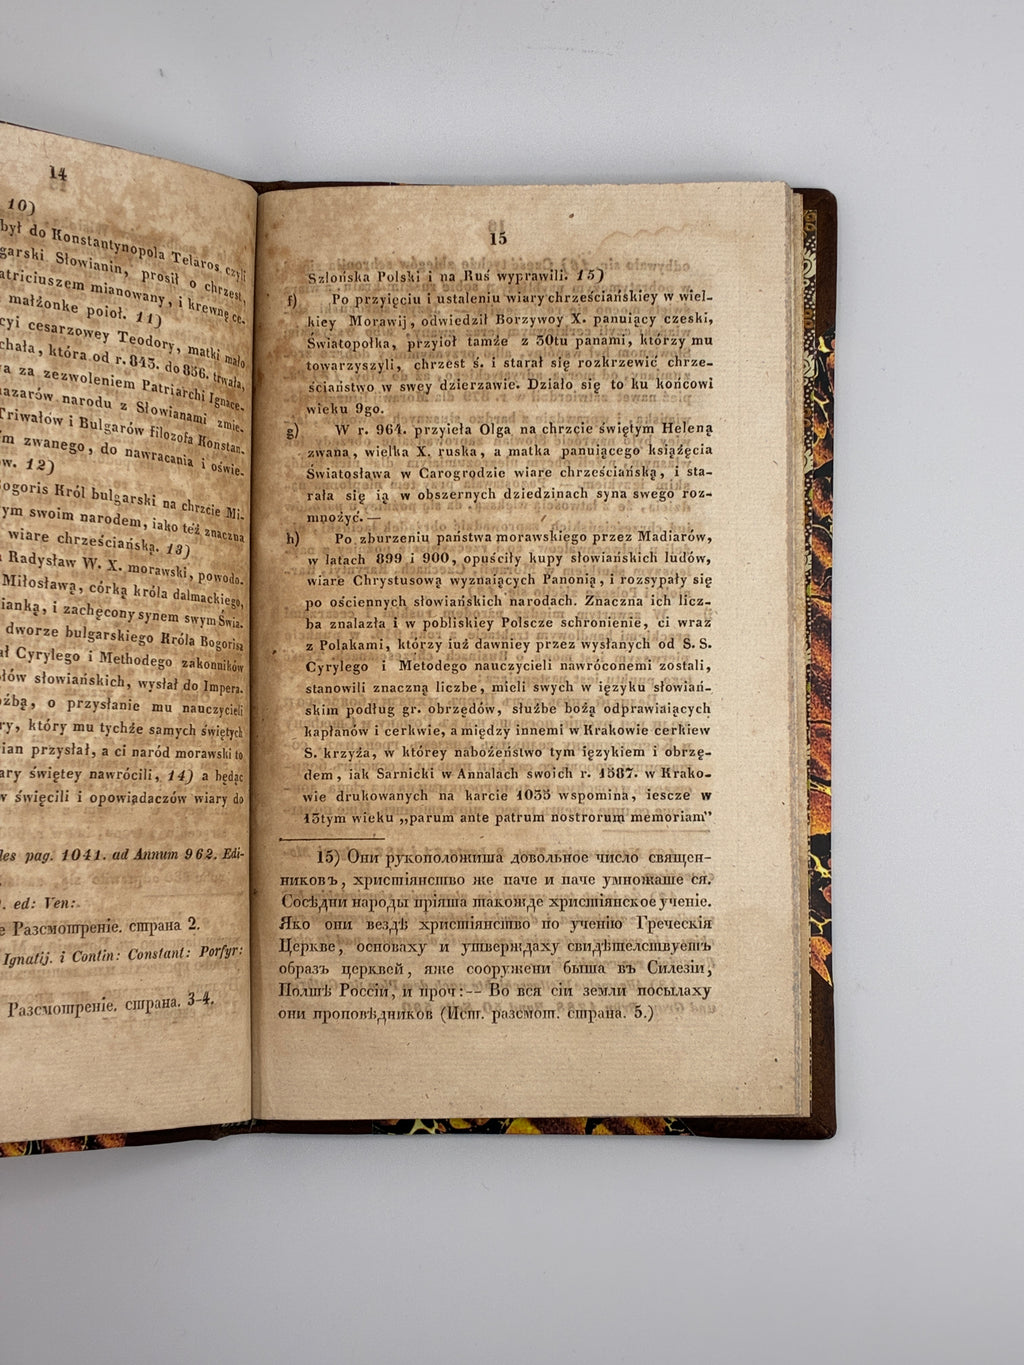 14
10)
był do Konstantynopola Telaros czyli
garski Słowianin, prosił o chrzest,
atriciuszem mianowany, i krewnę ce-
małżonke poioł. 11)
cyi cesarzowey Teodory, matki mało
chała, która od r. 843. do 856. trwała,
a za zezwoleniem Patriarchi Ignace-
azarów narodu z Słowianami zmie-
Triwałów i Bulgarów filozofa Konstan-
m zwanego, do nawracania i oświe-
w. 12)
ogoris Król bulgarski na chrzcie Mi-
ym swoim narodem, iako też znaczna
wiare chrześciańską. 13)
Radysław W. X. morawski, powodo.
Miłosławą, córką króla dalmackiego,
ianką, i zachęcony synem swym Świa.
dworze bulgarskiego Króla Bogorisa
ał Cyrylego i Methodego zakonników
łów słowiańskich, wysłał do Impera.
oźbą, o przysłanie mu nauczycieli
ry, który mu tychże samych świętych
ian przysłał, a ci naród morawski to
ary świętey nawrócili, 14) a będąc
w święcili i opowiadaczów wiary do
les pag. 1041. ad Annum 962. Edi-
. ed: Ven:
е Разсмотреніе. страна 2.
Ignatij. i Contin: Constant: Porfyr:
Разсмотреніе. страна. 3-4.
15
Szlońska Polski i na Ruś wyprawili. 15)
f) Po przyięciu i ustaleniu wiary chrześciańskiey w wiel-
kiey Morawij, odwiedził Borzywoy X. panuiący czeski,
Światopołka, przyioł tamże z 30tu panami, którzy mu
towarzyszyli, chrzest ś. i starał się rozkrzewić chrze-
ściaństwo w swey dzierzawie. Działo się to ku końcowi
wieku 9go.
g) W r. 964. przyieła Olga na chrzcie świętym Heleną
zwana, wielka X. ruska, a matka panuiącego książęcia
Światosława w Carogrodzie wiare chrześciańską, i sta-
rała się ią w obszernych dziedzinach syna swego roz-
mnożyć. —
h) Po zburzeniu państwa morawskiego przez Madiarów,
w latach 899 i 900, opuściły kupy słowiańskich ludów,
wiare Chrystusową wyznaiących Panonią, i rozsypały się
po ościennych słowiańskich narodach. Znaczna ich licz-
ba znalazła i w pobliskiey Polscze schronienie, ci wraz
z Polakami, którzy iuż dawniey przez wysłanych od S. S.
Cyrylego i Metodego nauczycieli nawróconemi zostali,
stanowili znaczną liczbe, mieli swych w ięzyku słowiań-
skim podług gr. obrzędów, służbe bożą odprawiaiących
kapłanów i cerkwie, a między innemi w Krakowie cerkiew
S. krzyża, w którey nabożeństwo tym ięzykiem i obrzę-
dem, iak Sarnicki w Annalach swoich r. 1587. w Krako-
wie drukowanych na karcie 1035 wspomina, iescze w
13tym wieku „parum ante patrum nostrorum memoriam”
15) Они рукоположиша довольное число священ-
никовъ, христіянство же паче и паче умножаше ся.
Сосѣдни народы пріяша такожде христіянское ученіе.
Яко они вездѣ христіянство по ученію Греческія
Церкве, основаху и утверждаху свидѣтелствуетъ
образъ церквей, яже сооружени быша въ Силезіи,
Полшѣ Россіи, и проч:-- Во вся сіи земли посылаху
они проповѣдников (Ист. разсмот. страна. 5.)